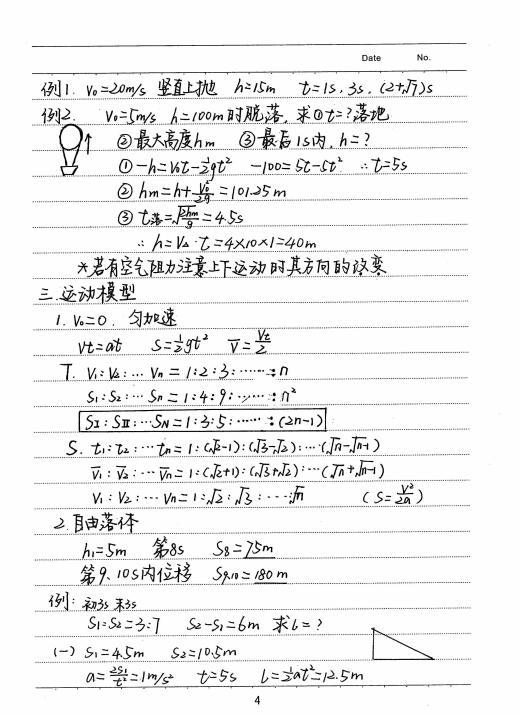 Date No.
例1. V₀=20m/s 竖直上抛 h=15m t=1s, 3s, (2+√7)s
例2. V₀=5m/s h=100m时脱落, 求①t=?落地
②最大高度hm ③最后1s内, h=?
①-h=V₀t-½gt² -100=5t-5t² ∴t=5s
②hm=h+V₀²/2g=101.25m
③t落=√(2hm/g)=4.5s
∴h=V·t=4×10×1=40m
*若有空气阻力注意上下运动时其方向的改变
三.运动模型
1. V₀=0, 匀加速
Vt=at S=½gt² V̄=Vt/2
T. V₁:V₂:…Vn=1:2:3:……:n
S₁:S₂:…Sn=1:4:9:……:n²
SⅠ:SⅡ:…SN=1:3:5:……:(2n-1)
S. t₁:t₂:…tn=1:(√2-1):(√3-√2):…(√n-√n-1)
V̄₁:V̄₂:…V̄n=1:(√2+1):(√3+√2):…(√n+√n-1)
V₁:V₂:…Vn=1:√2:√3:…√n (S=V²/2a)
2.自由落体
h₁=5m 第8s S₈=75m
第9、10s内位移 S₉,₁₀=180m
例: 初3s 末3s
S₁:S₂=3:7 S₂-S₁=6m 求L=?
(一) S₁=4.5m S₂=10.5m
a=2S₁/t²=1m/s² t=5s L=½at²=12.5m
4